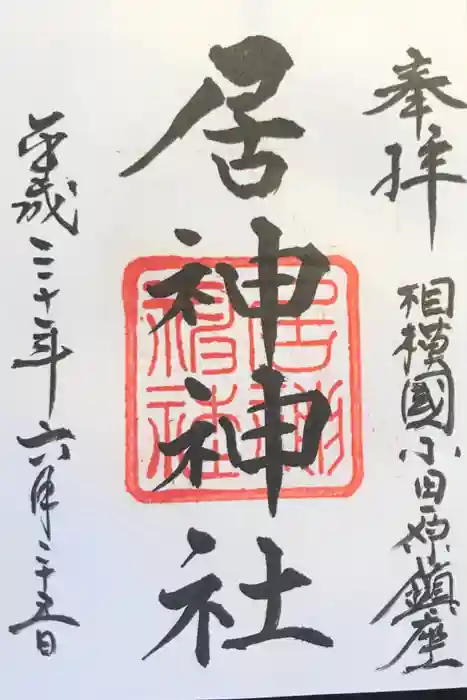 奉拝
相模國小田原鎮座
居神神社
居神
神社
平成三十年六月二十五日